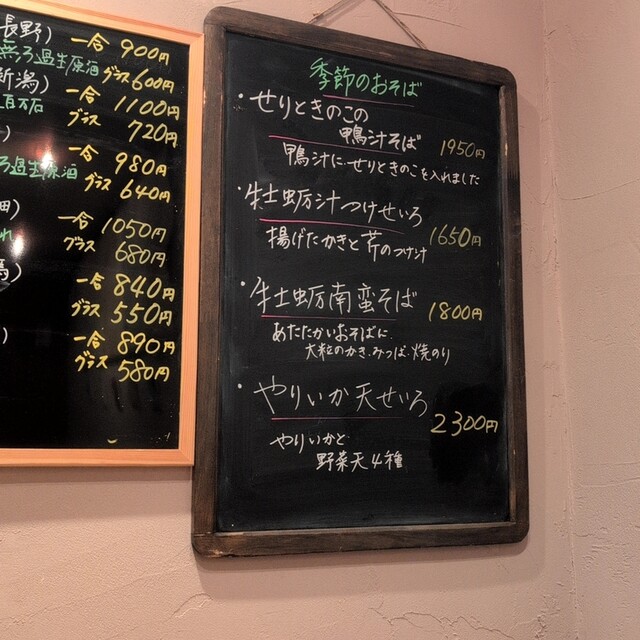 長野)
一合 900円
無ろ過生原酒 グラス 600円
新潟)
一合 1100円
グラス 720円
)
一合 980円
ろ過生原酒
グラス 640円
田)
一合 1050円
れ
グラス 680円
一合 840円
グラス 550円
)
一合 890円
グラス 580円
季節のおそば
・せりときのこの
鴨汁そば 1950円
鴨汁にせりときのこを入れました
・牡蛎汁つけせいろ
1650円
揚げたかきと芹のつけ汁
・牡蛎南蛮そば 1800円
あたたかいおそばに
大粒のかき、みつば、焼のり
・やりいか天せいろ
2300円
やりいかと
野菜天4種